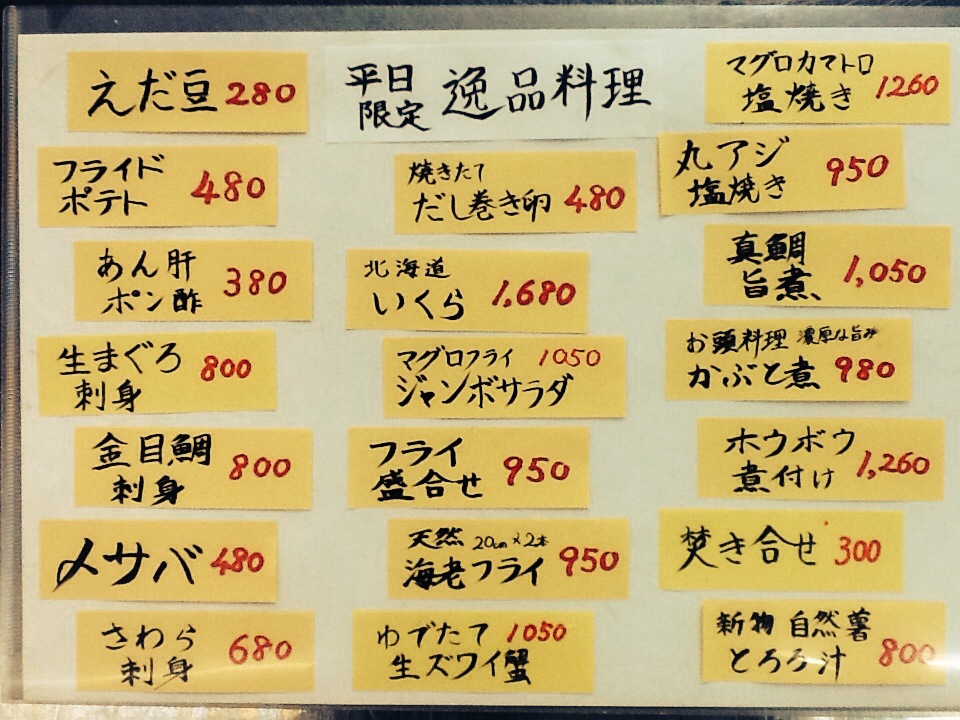 えだ豆 280
フライド
ポテト 480
あん肝
ポン酢 380
生まぐろ
刺身 800
金目鯛
刺身 800
〆サバ 480
さわら
刺身 680
平日
限定 逸品料理
焼きたて
だし巻き卵 480
北海道
いくら 1,680
マグロフライ 1050
ジャンボサラダ
フライ
盛合せ 950
天然 20cm×2本
海老フライ 950
ゆでたて 1050
生ズワイ蟹
マグロカマトロ
塩焼き 1260
丸アジ
塩焼き 950
真鯛
旨煮 1,050
お頭料理 濃厚な旨み
かぶと煮 980
ホウボウ
煮付け 1,260
焚き合せ 300
新物 自然薯
とろろ汁 800